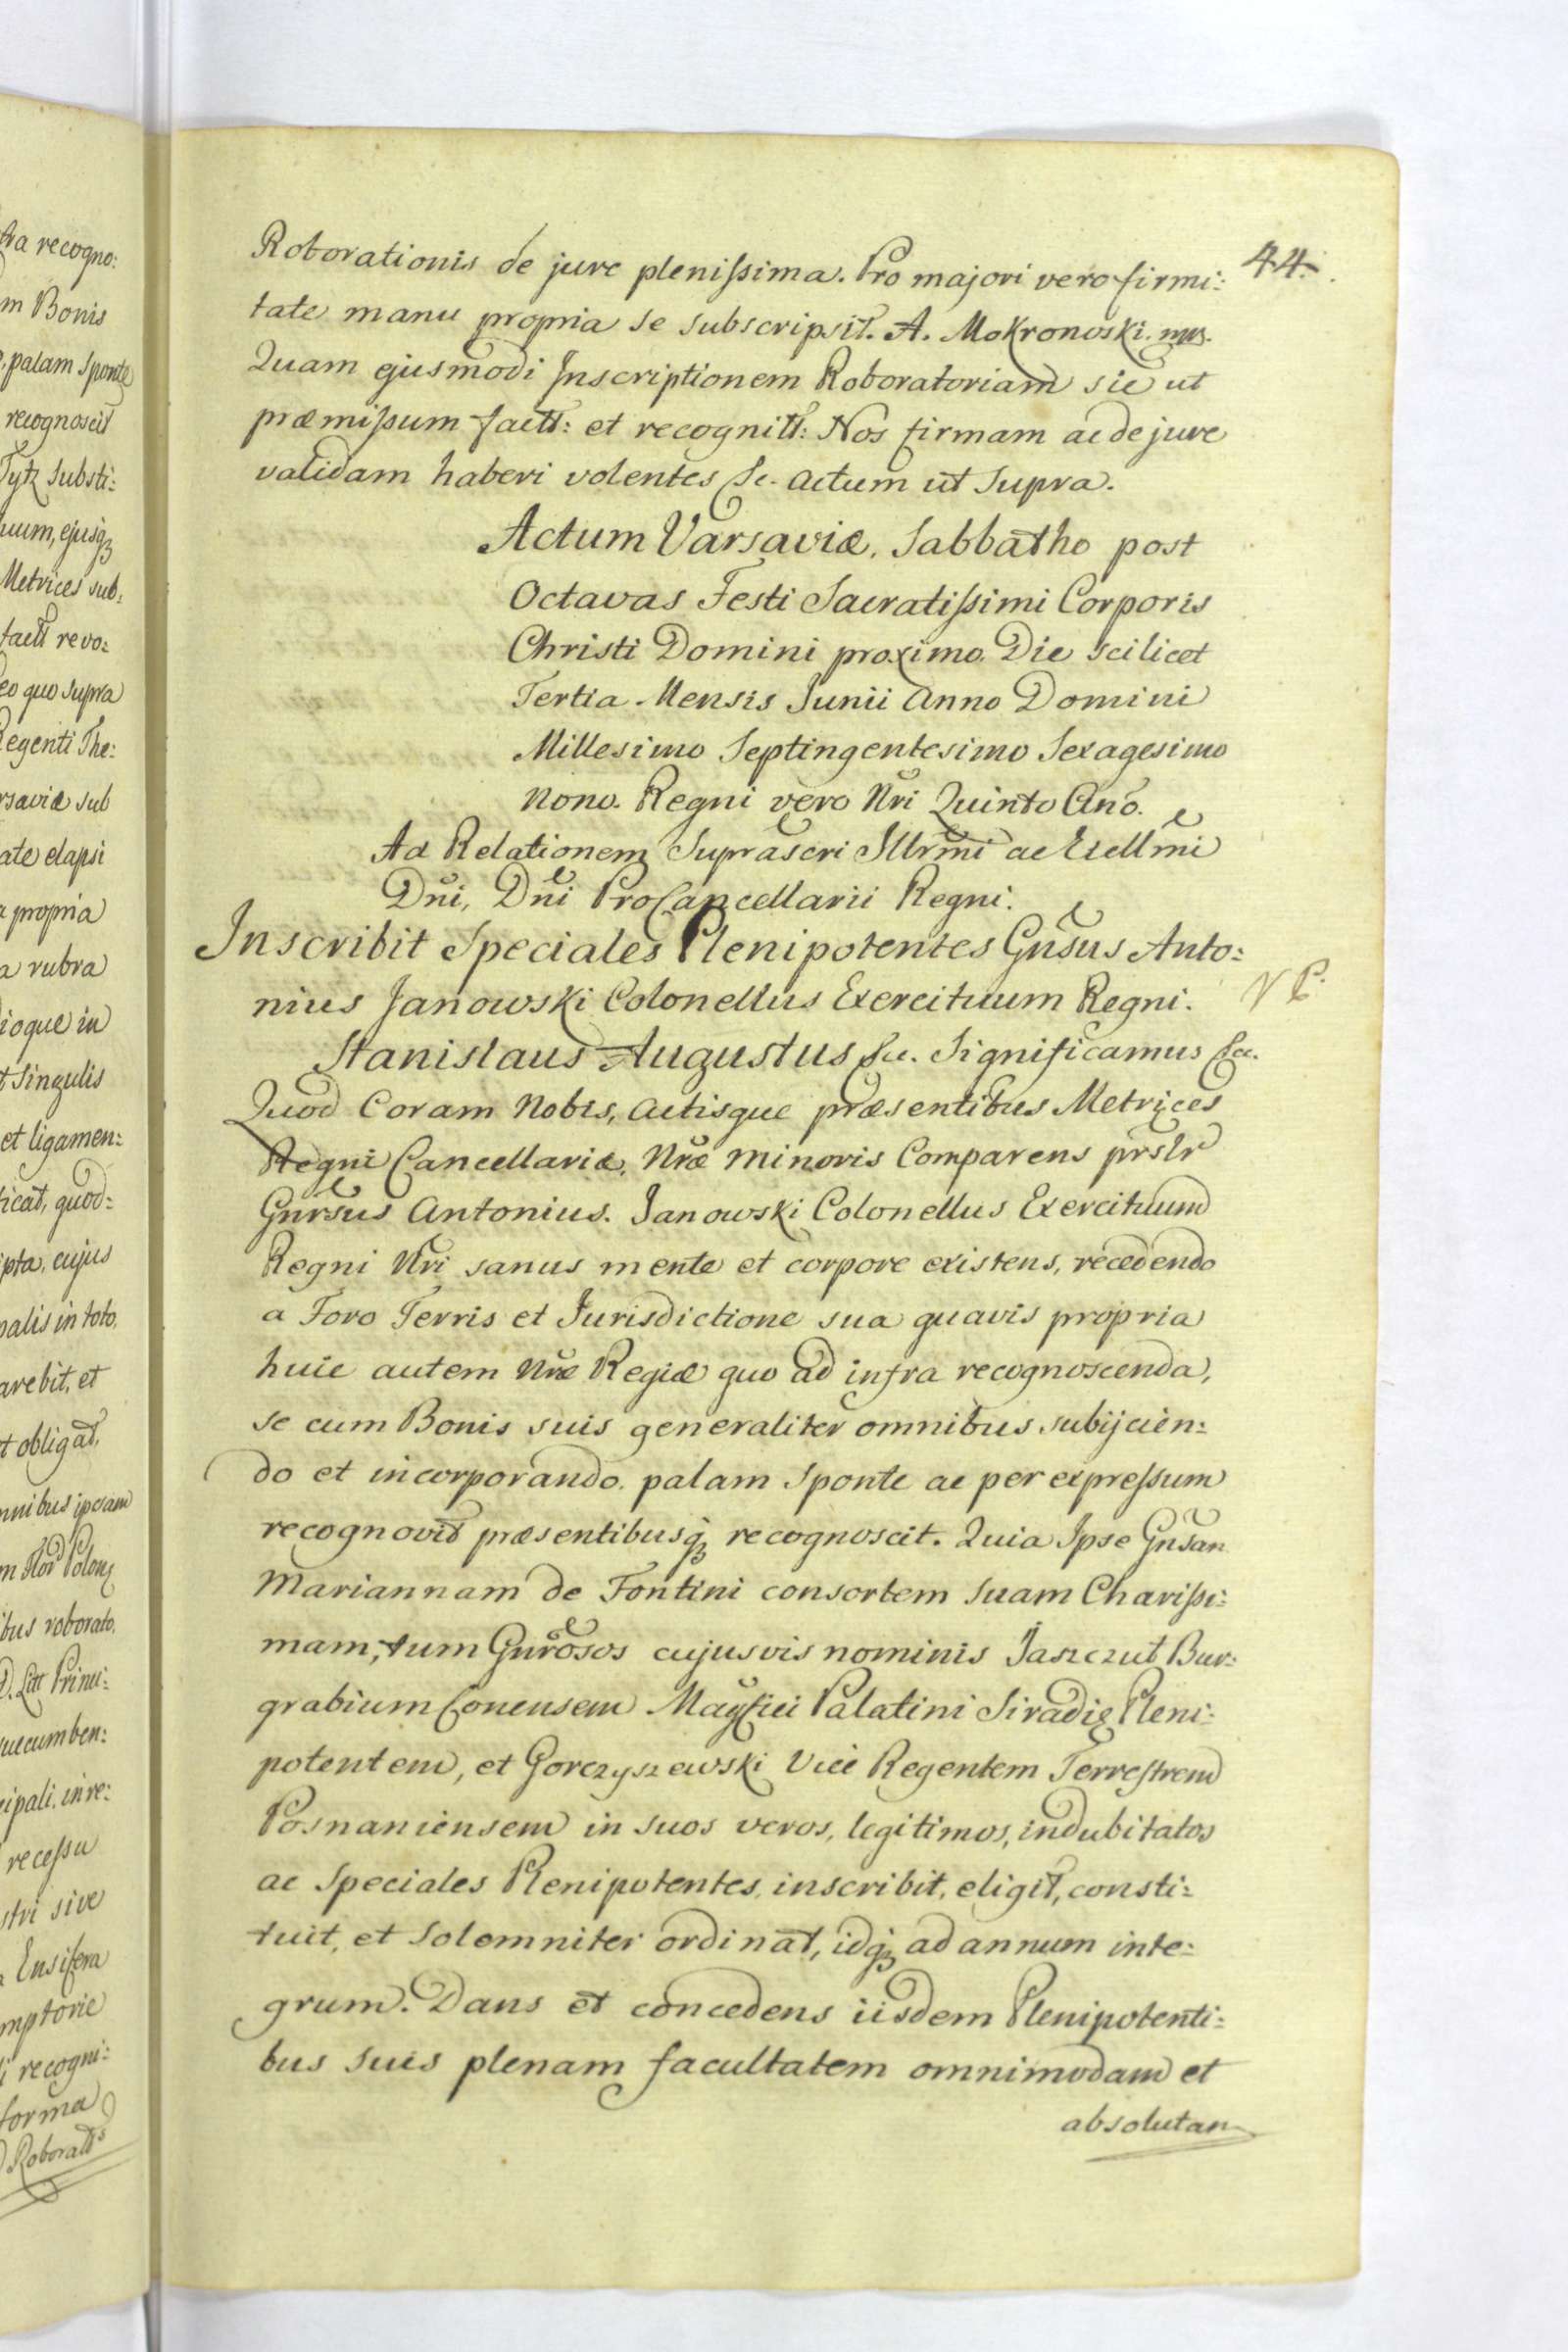 Roborationis de jure plenissima. Pro majori vero firmi:
44.
tate manu propria se subscripsit. A. Mokronoski. mp.
Quam ejusmodi Inscriptionem Roboratoriam sic ut
præmissum factt: et recognitt: Nos firmam ac de jure
validam haberi volentes &c. actum ut supra.
Actum Varsaviæ. Sabbatho post
Octavas Festi Sacratissimi Corporis
Christi Domini proximo. Die scilicet
Tertia Mensis Junii Anno Domini
Millesimo Septingentesimo Sexagesimo
Nono. Regni vero Nri Quinto Ano.
Ad Relationem Suprascri Illrmi ac Excllmi
Dni, Dni ProCancellarii Regni.
Inscribit Speciales Plenipotentes Gnsus Anto:
nius Janowski Colonellus Exercituum Regni.
Stanislaus Augustus &c. Significamus &c.
Quod Coram Nobis, Actisque præsentibus Metrices
Regni Cancellariæ. Nræ Minoris Comparens prslr
Gnrsus Antonius. Janowski Colonellus Exercituum
Regni Nri sanus mente et corpore existens, recedendo
a Foro Terris et Jurisdictione sua quavis propria
huic autem Nræ Regiæ quo ad infra recognoscenda,
se cum Bonis suis generaliter omnibus subijcien:
do et incorporando. palam sponte ac per expressum
recognovit præsentibusq recognoscit. Quia Ipse Gnsan
Mariannam de Fontini consortem suam Charissi:
mam, tum Gnrosos cujusvis nominis Jaszczut Bur:
grabium Conensem Magfici Palatini Siradiæ Pleni:
potentem, et Gorczyszewski Vice Regentem Terrestrem
Posnaniensem in suos veros, legitimos, indubitatos
ac speciales Plenipotentes inscribit, eligit, consti:
tuit, et solemniter ordinat, idq ad annum inte:
grum. Dans et concedens iisdem Plenipotenti:
bus suis plenam facultatem omnimodam et
absolutam